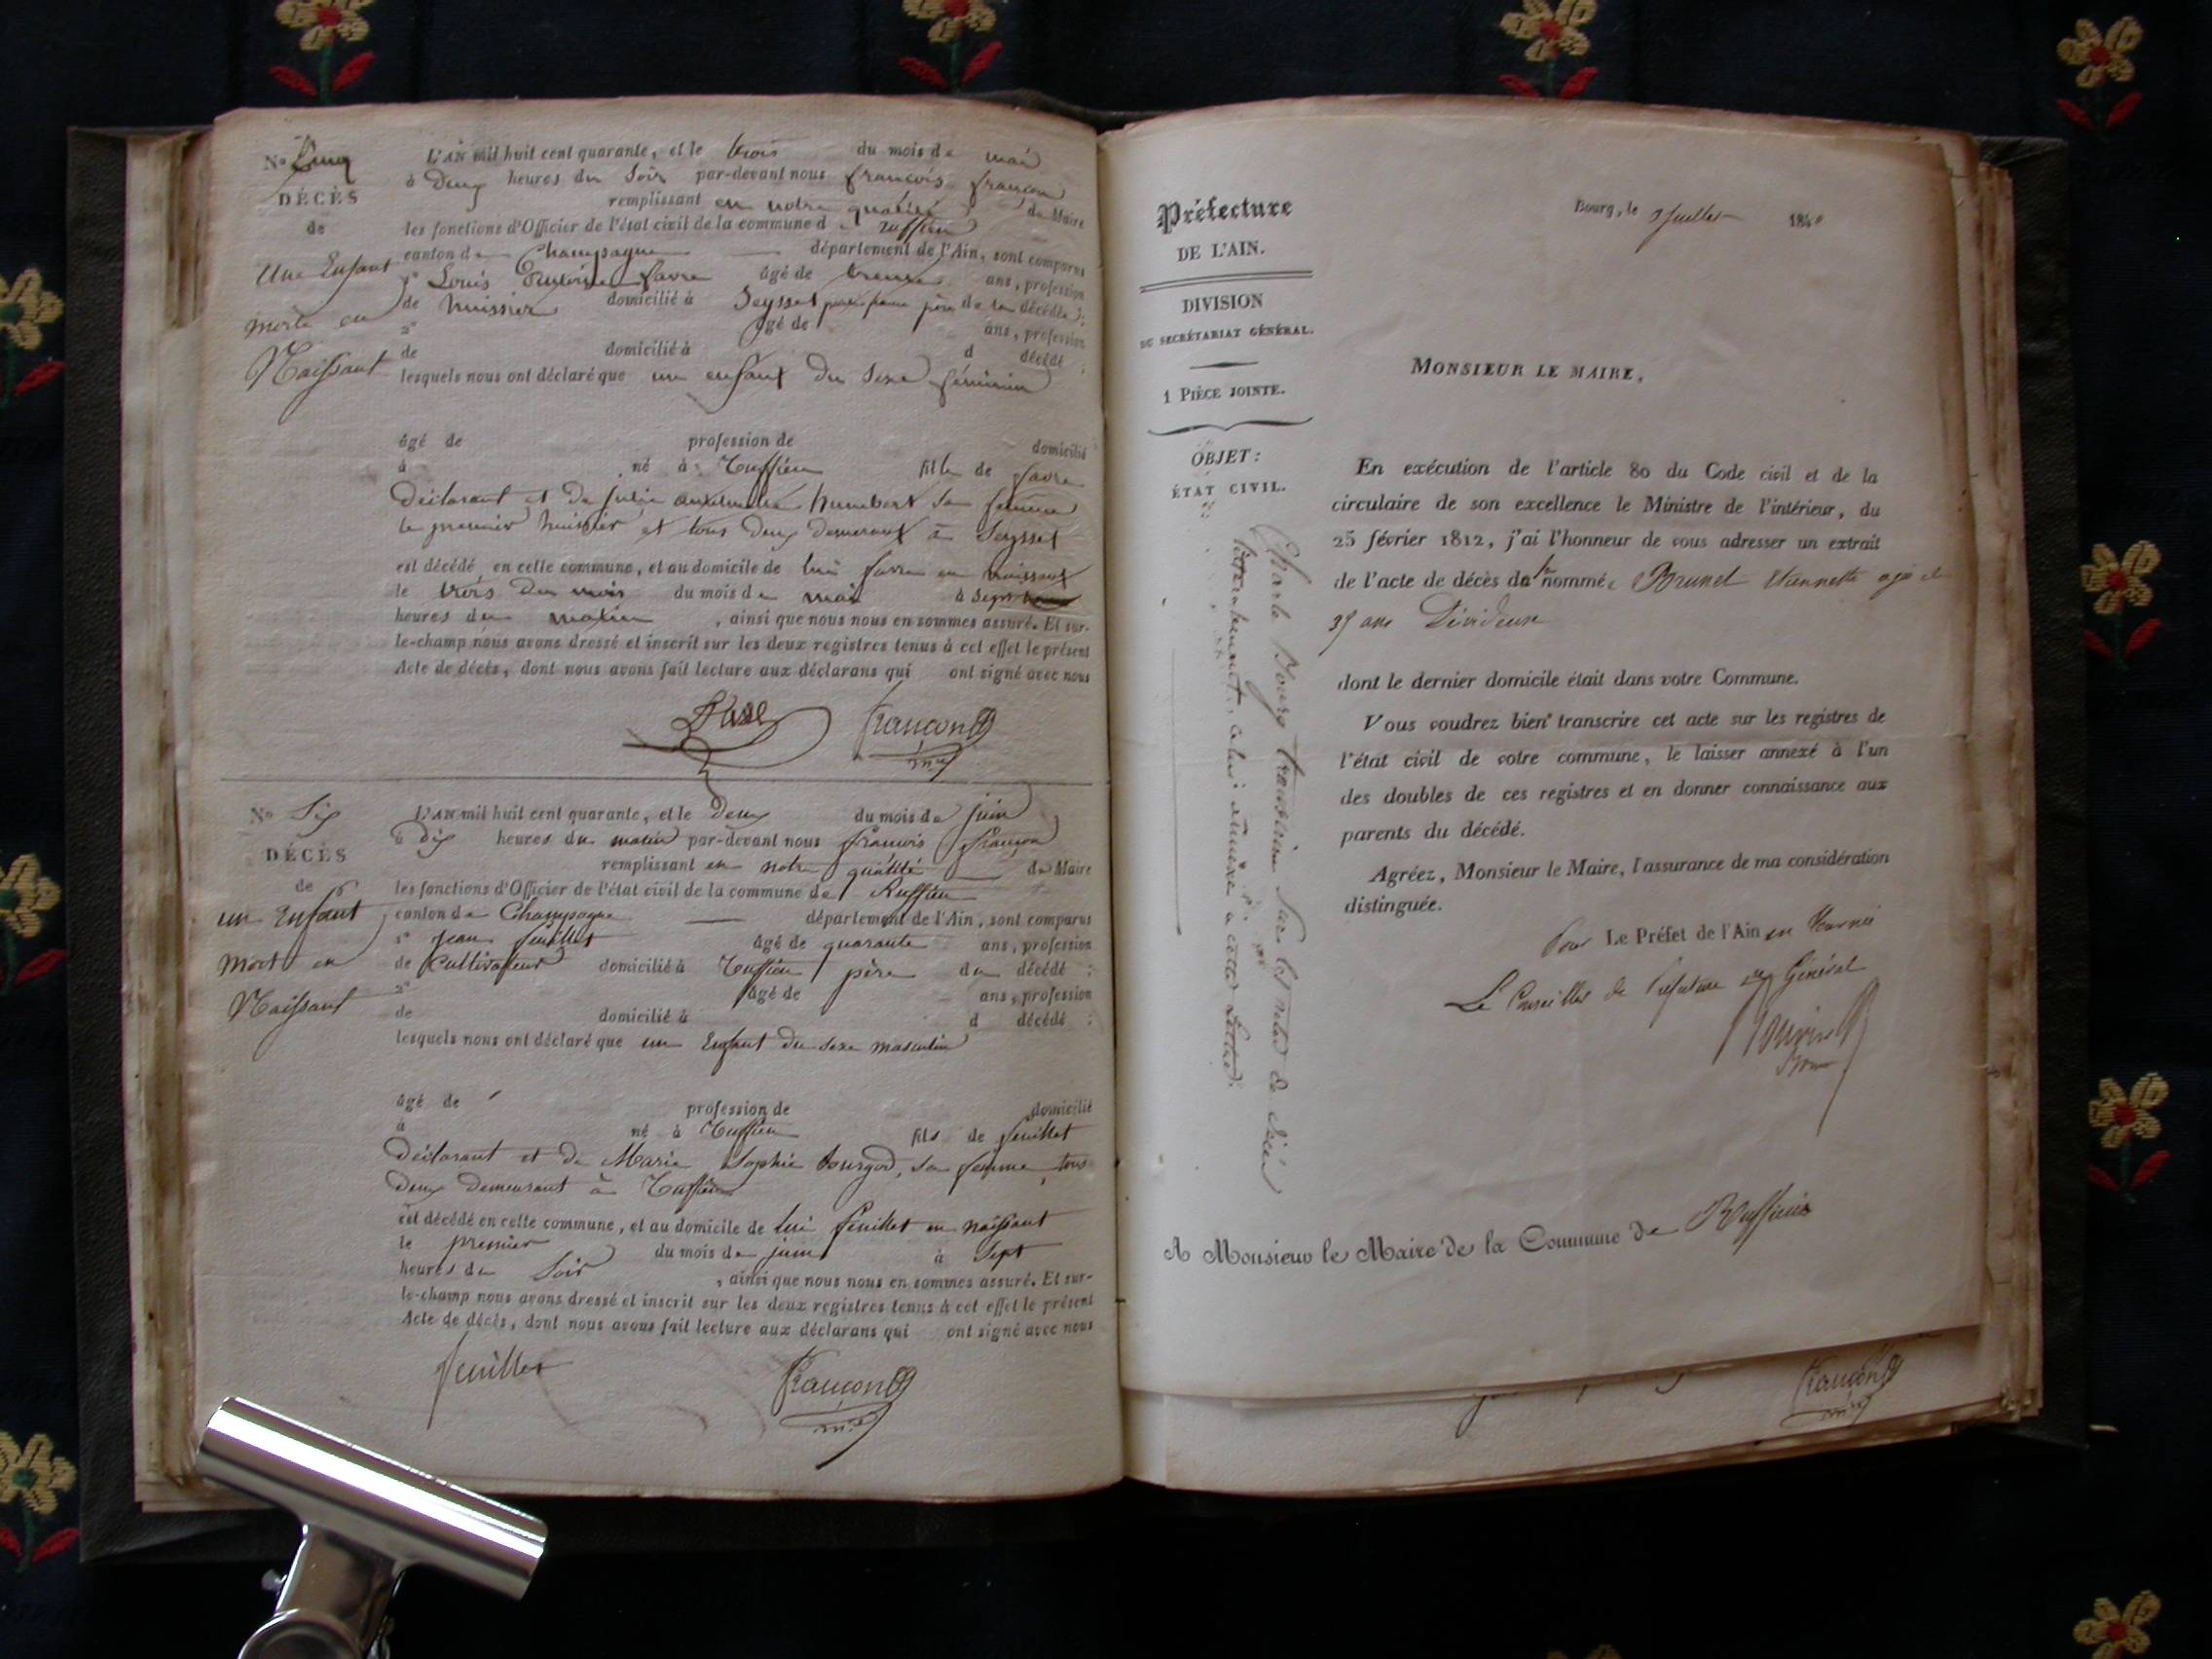 No Cinq
DÉCÈS
de
Une Enfant
morte en
Naissant
L'AN mil huit cent quarante, et le trois du mois de mai
à Deux heures du soir par-devant nous françois françon
remplissant en notre qualité de Maire
les fonctions d'Officier de l'état civil de la commune de ruffieu
canton de Champagne département de l'Ain, sont comparus
1° Louis favre âgé de trente ans, profession
de huissier domicilié à Seyssel père de la décédée ;
2° âgé de ans, profession
de domicilié à d décédé ;
lesquels nous ont déclaré que un enfant du sexe féminin
âgé de profession de domicilié
à né à Ruffieu fille de favre
déclarant et de julie humbert sa femme
le premier huissier et tous deux demeurant à Seyssel
est décédé en cette commune, et au domicile de lui favre en naissant
le trois du mois du mois de mai à sept
heures du matin , ainsi que nous nous en sommes assuré. Et sur-
le-champ nous avons dressé et inscrit sur les deux registres tenus à cet effet le présent
Acte de décès, dont nous avons fait lecture aux déclarans qui ont signé avec nous
françon
mre
No Six
DÉCÈS
de
un Enfant
Mort en
Naissant
L'AN mil huit cent quarante, et le Deux du mois de juin
à dix heures du matin par-devant nous françois françon
remplissant en notre qualité de Maire
les fonctions d'Officier de l'état civil de la commune de Ruffieu
canton de Champagne département de l'Ain, sont comparus
1° jean feuillet âgé de quarante ans, profession
de Cultivateur domicilié à Ruffieu père du décédé ;
2° âgé de ans, profession
de domicilié à d décédé ;
lesquels nous ont déclaré que un Enfant du sexe masculin
âgé de profession de domicilié
à né à Ruffieu fils de feuillet
déclarant et de Marie Sophie bourgod, sa femme, tous
deux demeurant à Ruffieu
est décédé en cette commune, et au domicile de lui feuillet en naissant
le premier du mois de juin à sept
heures du soir , ainsi que nous nous en sommes assuré. Et sur-
le-champ nous avons dressé et inscrit sur les deux registres tenus à cet effet le présent
Acte de décès, dont nous avons fait lecture aux déclarans qui ont signé avec nous
feuillet françon
mre
Préfecture
DE L'AIN.
DIVISION
DU SECRÉTARIAT GÉNÉRAL.
1 PIÈCE JOINTE.
OBJET :
ÉTAT CIVIL.
Bourg, le juillet 1840
MONSIEUR LE MAIRE,
En exécution de l'article 80 du Code civil et de la
circulaire de son excellence le Ministre de l'intérieur, du
25 février 1812, j'ai l'honneur de vous adresser un extrait
de l'acte de décès de la nommée Brunet agée de
ans Dévideuse
dont le dernier domicile était dans votre Commune.
Vous voudrez bien transcrire cet acte sur les registres de
l'état civil de votre commune, le laisser annexé à l'un
des doubles de ces registres et en donner connaissance aux
parents du décédé.
Agréez, Monsieur le Maire, l'assurance de ma considération
distinguée.
Pour Le Préfet de l'Ain en tournée
Le Conseiller de Préfecture Général
A Monsieur le Maire de la Commune de Ruffieux
françon
mre